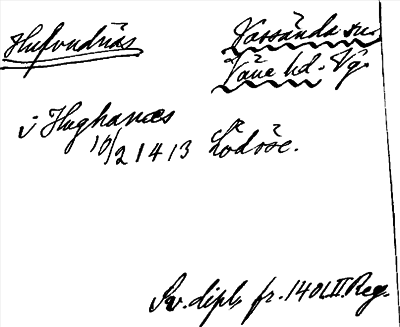 Hufvudnäs
Vassända sn.
Väne hd. Vg.
i Hughanæs
10/2 1413 Lödöse.
Sv. dipl. fr. 1401 II. Reg.